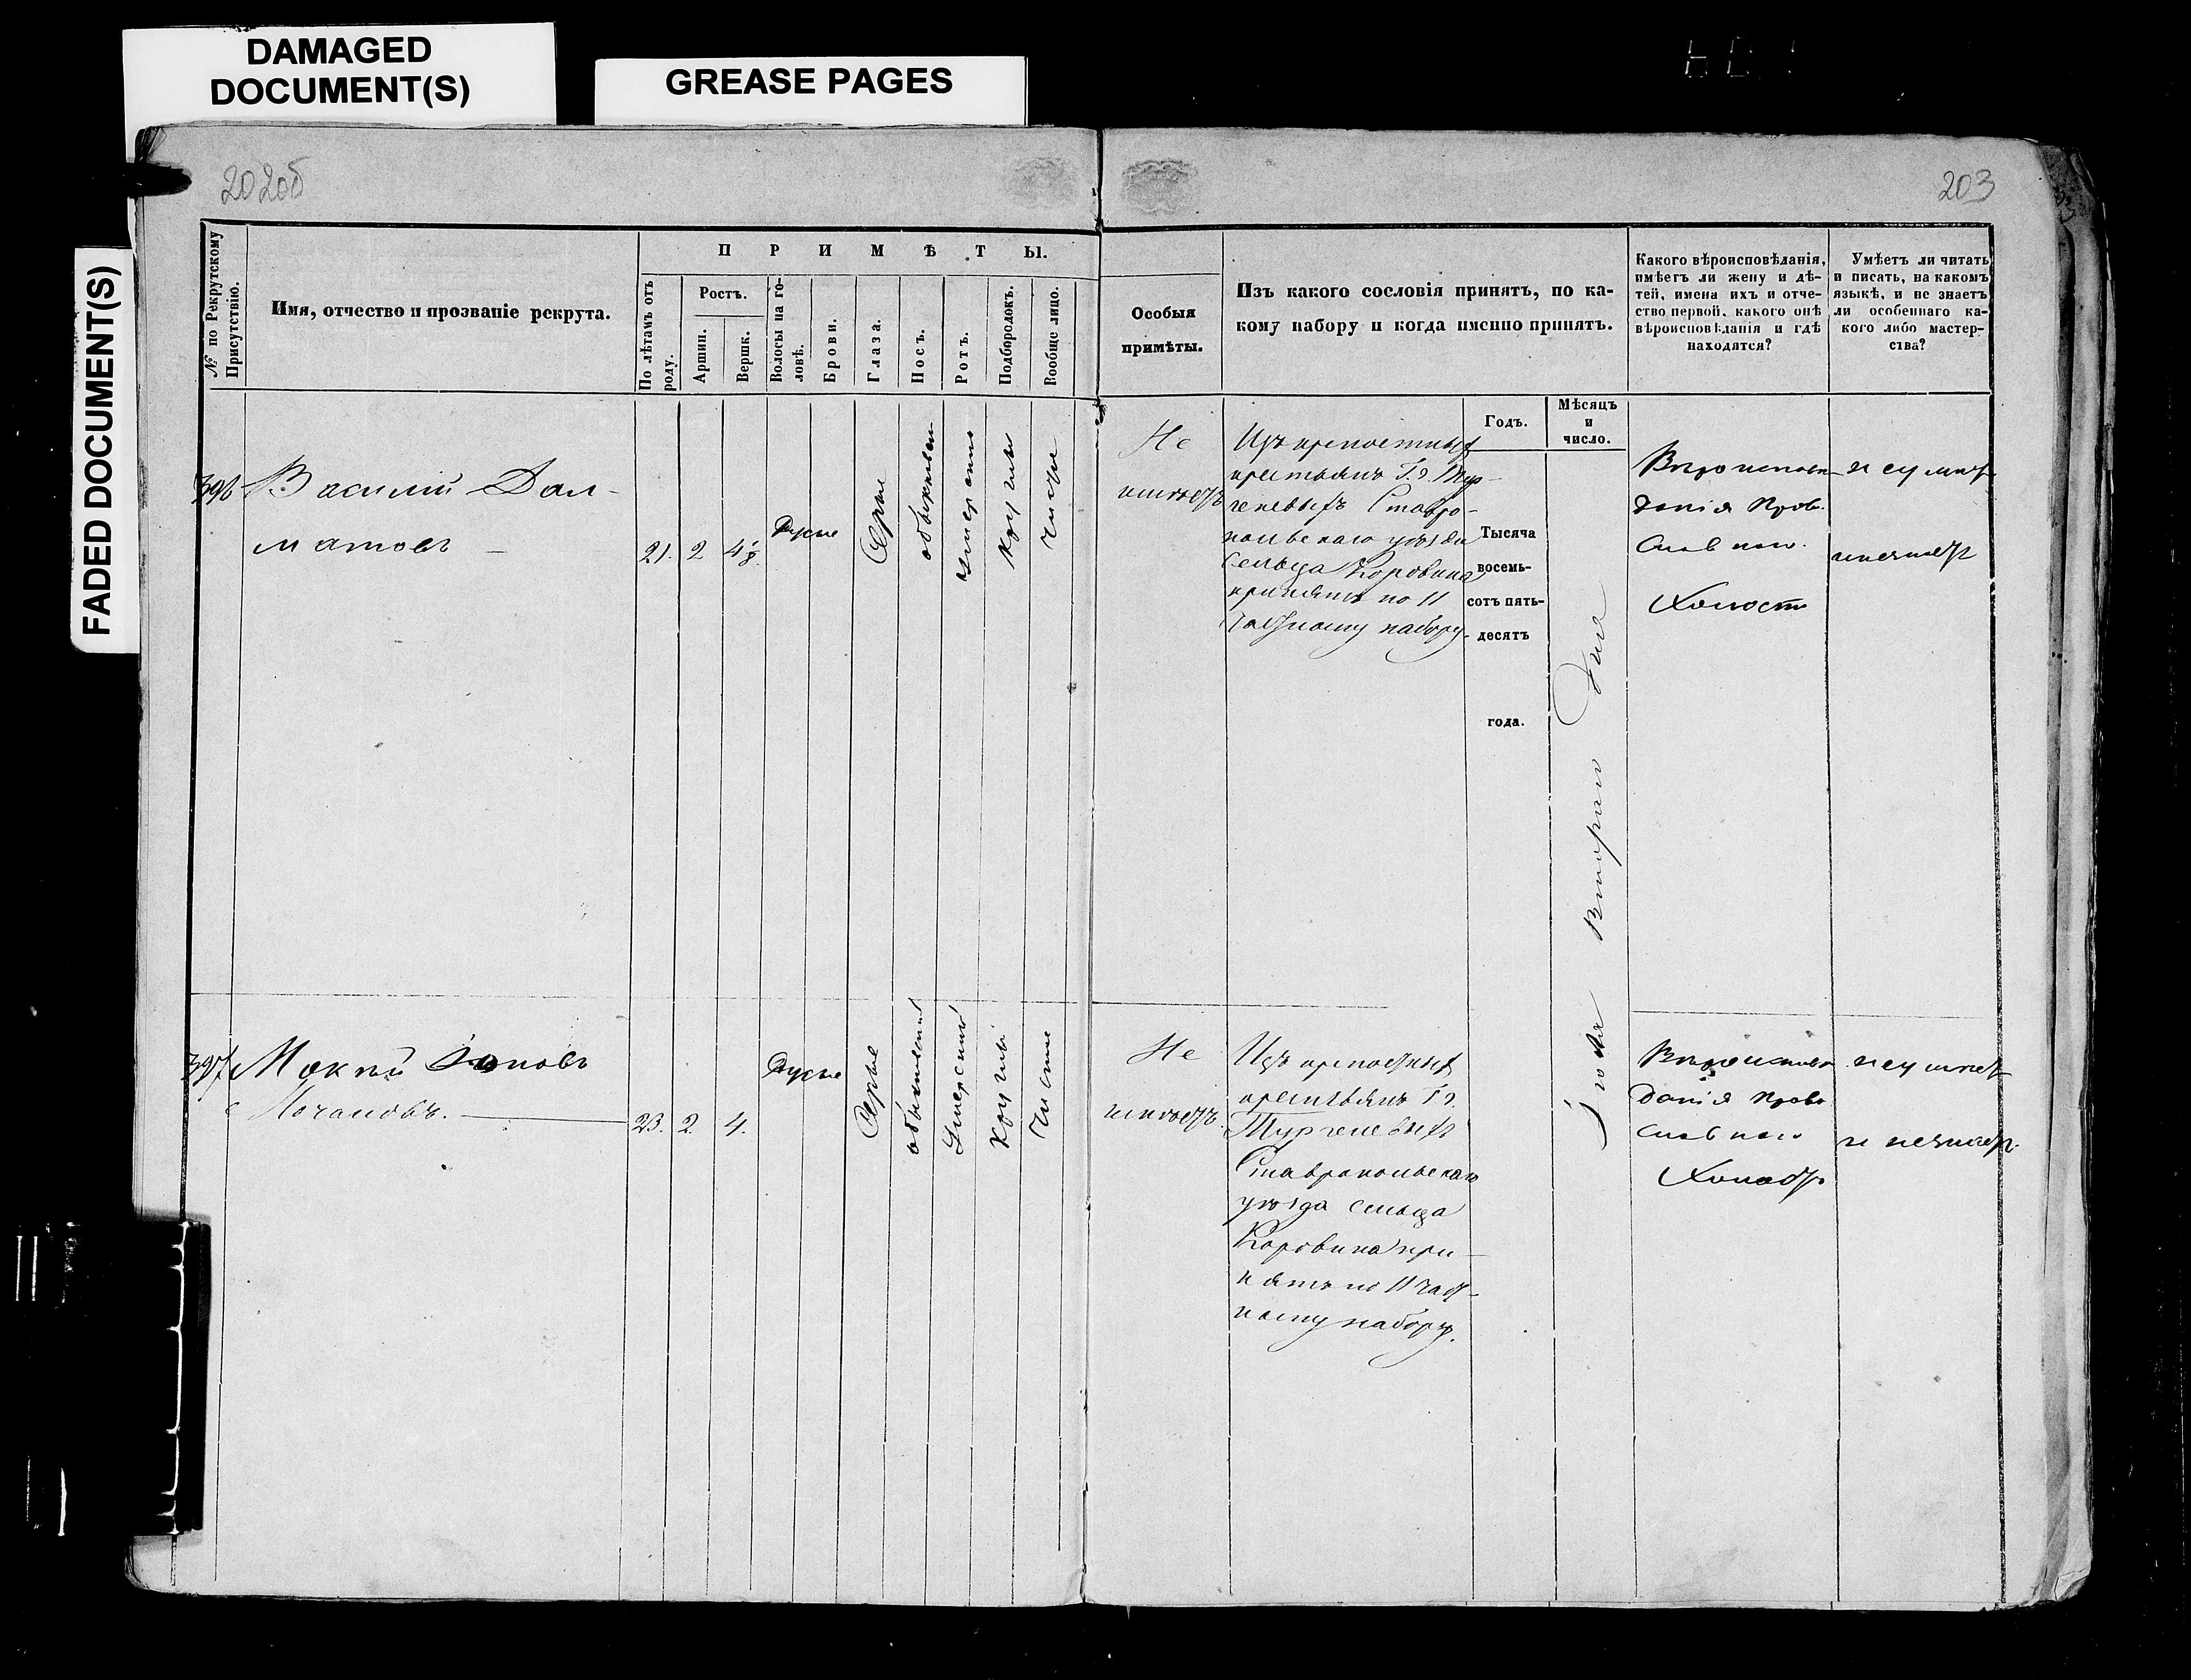 DAMAGED
DOCUMENT(S)
GREASE PAGES
FADED DOCUMENT(S)
202об
203
№ по Рекрутскому
Присутствію.
Имя, отчество и прозваніе рекрута.
ПРИМѢТЫ.
По лѣтамъ отъ
роду.
Ростъ.
Аршин.
Вершк.
Волосы на го-
ловѣ.
Брови.
Глаза.
Носъ.
Ротъ.
Подбородокъ.
Вообще лицо.
Особыя
примѣты.
Изъ какого сословія принятъ, по ка-
кому набору и когда именно принятъ.
Какого вѣроисповѣданія,
имѣетъ ли жену и дѣ-
тей, имена ихъ и отче-
ство первой, какого онѣ
вѣроисповѣданія и гдѣ
находятся?
Умѣетъ ли читать
и писать, на какомъ
языкѣ, и не знаетъ
ли особеннаго ка-
кого либо мастер-
ства?
Годъ.
Мѣсяцъ
и
число.
396
Василий Дал-
матовъ
21.
2
4⅛.
Русые
Серые
обыкновен
умеренно
круглы
чистые
Не
имѣетъ
Изъ крепостныхъ
крестьянъ Г.г. Тур-
геневыхъ Ставро-
польскаго уѣзда
Сельца Коровина
принятъ по 11
частному набору.
Тысяча
восемь-
сотъ пять-
десятъ
года.
Іюля Втораго дня
Вероиспове
данія Право
славнаго.
Холостъ
неумѣетъ
и незнаетъ
397
Мокий Іоновъ
Мочаловъ.
23.
2.
4.
Русые
Серые
обыкновенный
Умеренный
Круглый
Чистые
Не
имѣетъ.
Изъ крепостныхъ
крестьянъ Г.г.
Тургеневыхъ
Ставропольскаго
уѣзда сельца
Коровина при-
нятъ по 11 част-
ному набору.
Вероиспове
данія Право
славнаго
Холостъ
неумѣетъ
и незнаетъ.